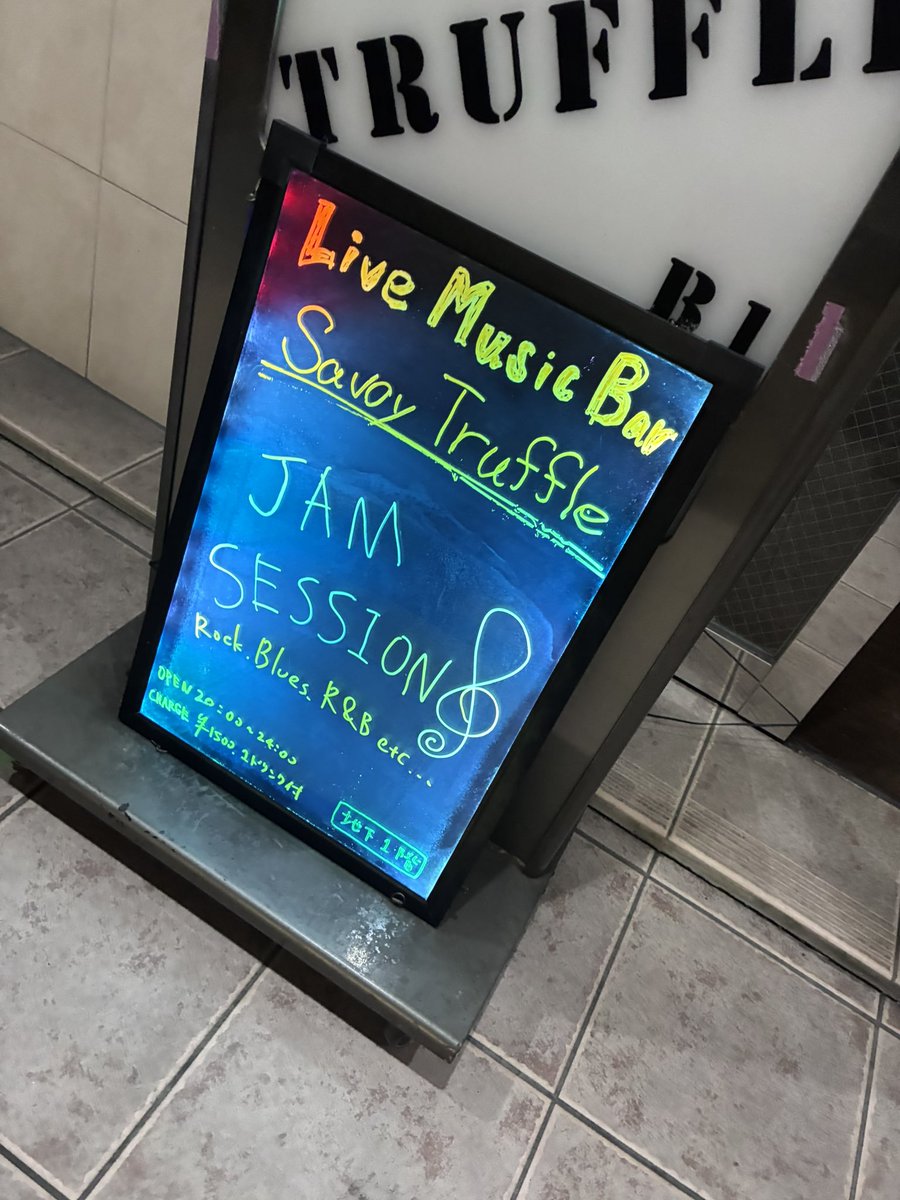 TRUFFL
Live Music Bar
Savoy Truffle
JAM
SESSION
Rock. Blues. R&B etc...
OPEN 20:00~24:00
CHARGE ¥1500 1ドリンク付
地下1階